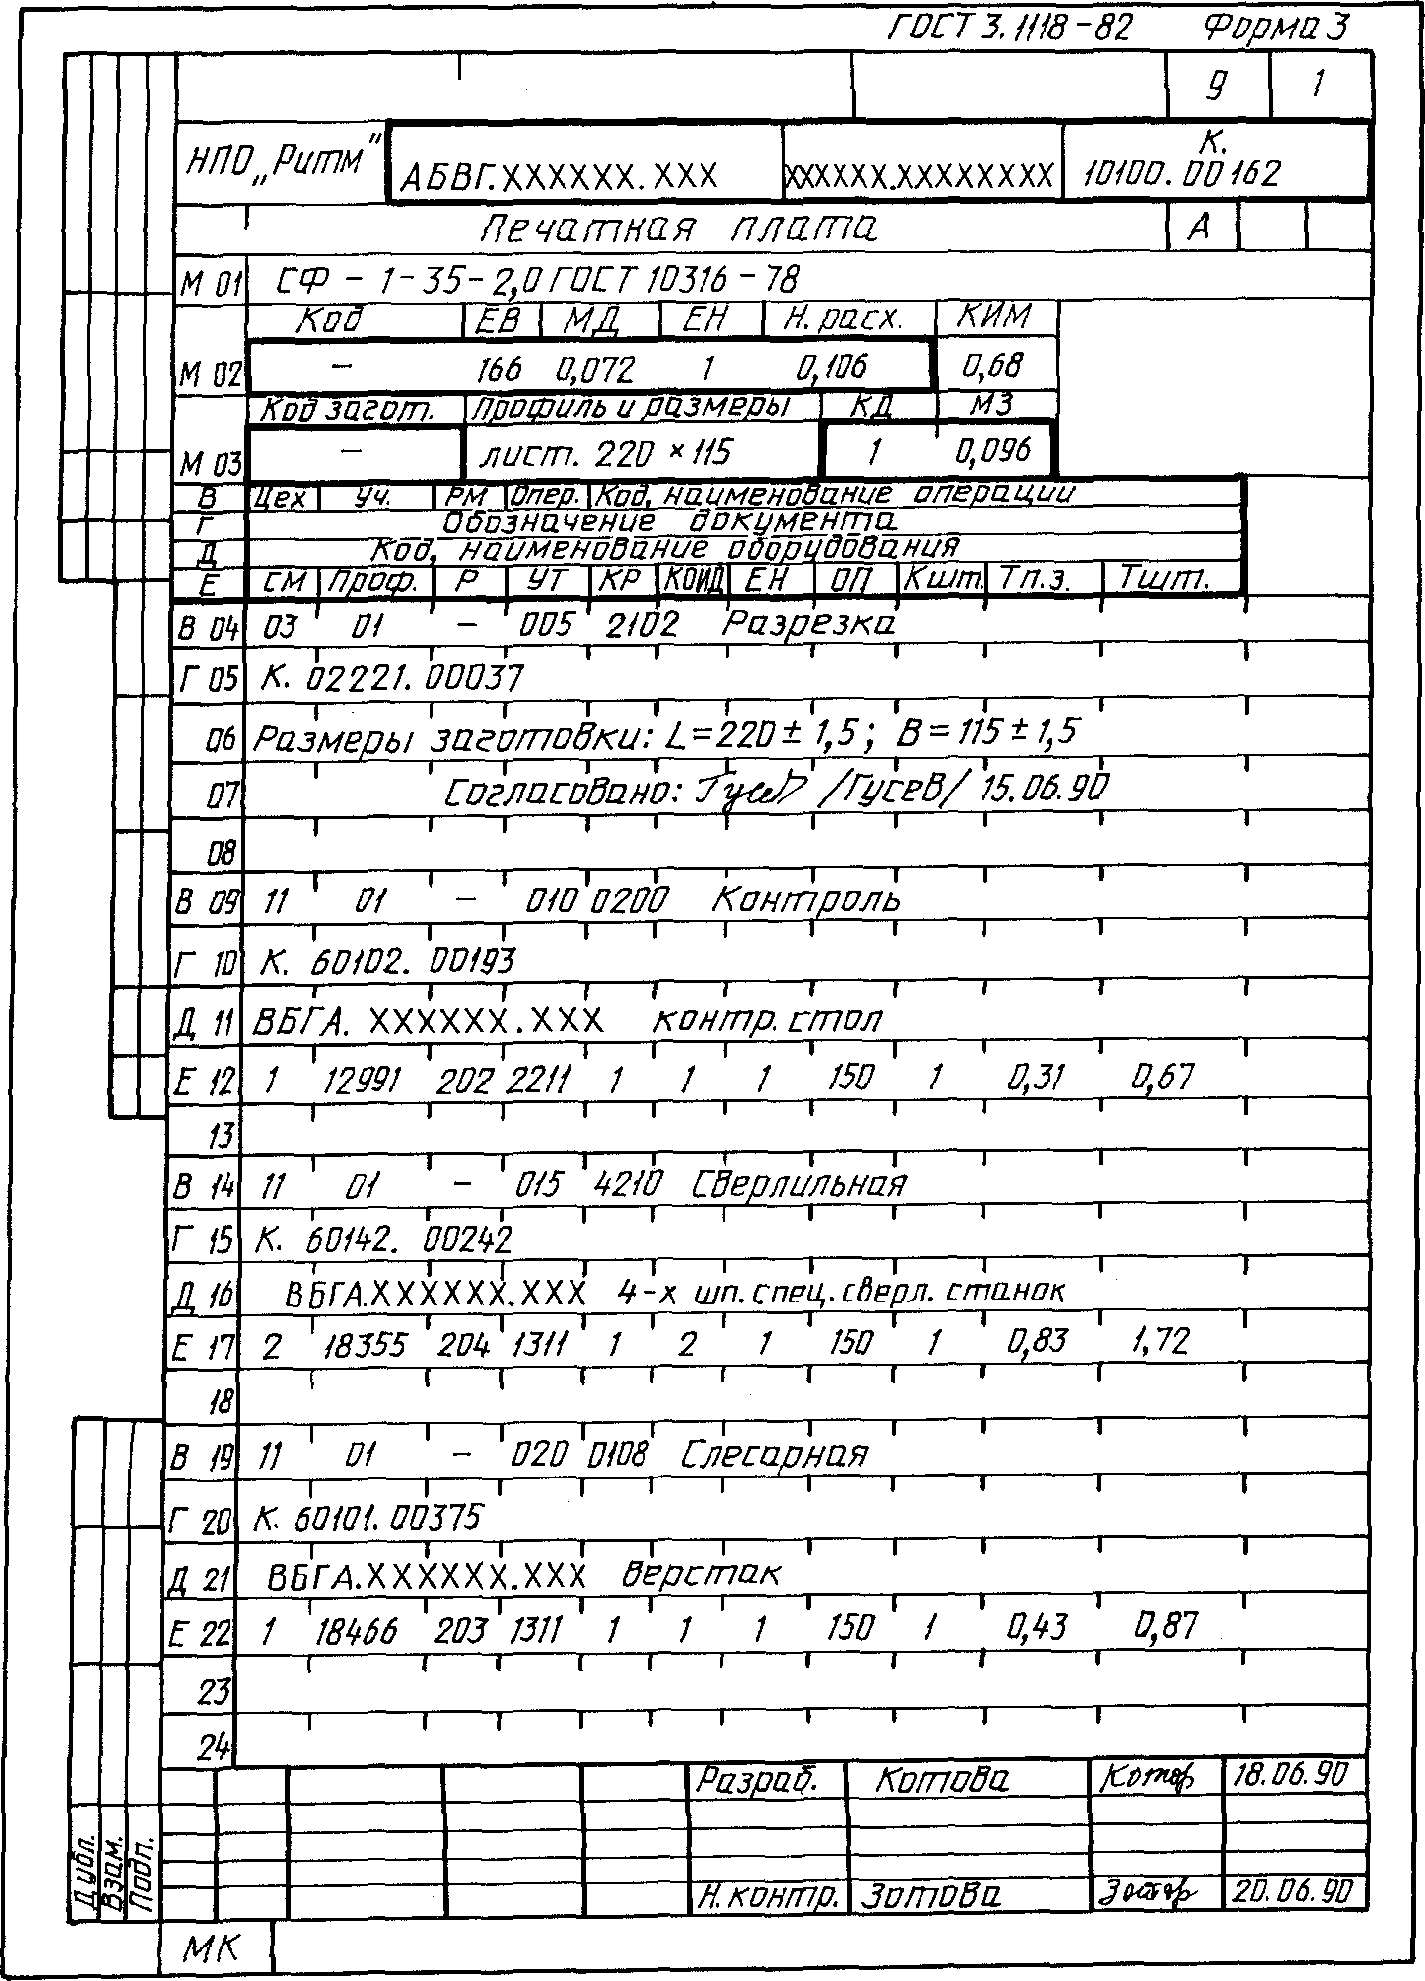 ГОСТ 3.1118-82 Форма 3
9 1
НПО „Ритм" АБВГ.XXXXXX.XXX XXXXXX.XXXXXXXX К. 10100.00162
Печатная плата А
М 01 СФ-1-35-2,0 ГОСТ 10316-78
Код ЕВ МД ЕН Н. расх. КИМ
М 02 - 166 0,072 1 0,106 0,68
Код загот. Профиль и размеры КД МЗ
М 03 - лист. 220×115 1 0,096
В Цех Уч. РМ Опер. Код, наименование операции
Г Обозначение документа
Д Код, наименование оборудования
Е СМ Проф. Р УТ КР КОИД ЕН ОП Кшт. Тп.з. Тшт.
В 04 03 01 - 005 2102 Разрезка
Г 05 К. 02221. 00037
06 Размеры заготовки: L=220±1,5; В=115±1,5
07 Согласовано: Гусев /Гусев/ 15.06.90
08
В 09 11 01 - 010 0200 Контроль
Г 10 К. 60102. 00193
Д 11 ВБГА. XXXXXX.XXX контр. стол
Е 12 1 12991 202 2211 1 1 1 150 1 0,31 0,67
13
В 14 11 01 - 015 4210 Сверлильная
Г 15 К. 60142. 00242
Д 16 ВБГА.XXXXXX.XXX 4-х шп. спец. сверл. станок
Е 17 2 18355 204 1311 1 2 1 150 1 0,83 1,72
18
В 19 11 01 - 020 0108 Слесарная
Г 20 К. 60101. 00375
Д 21 ВБГА.XXXXXX.XXX верстак
Е 22 1 18466 203 1311 1 1 1 150 1 0,43 0,87
23
24
Разраб. Котова 18.06.90
Н. контр. Зотова 20.06.90
Дубл.
Взам.
Подп.
МК